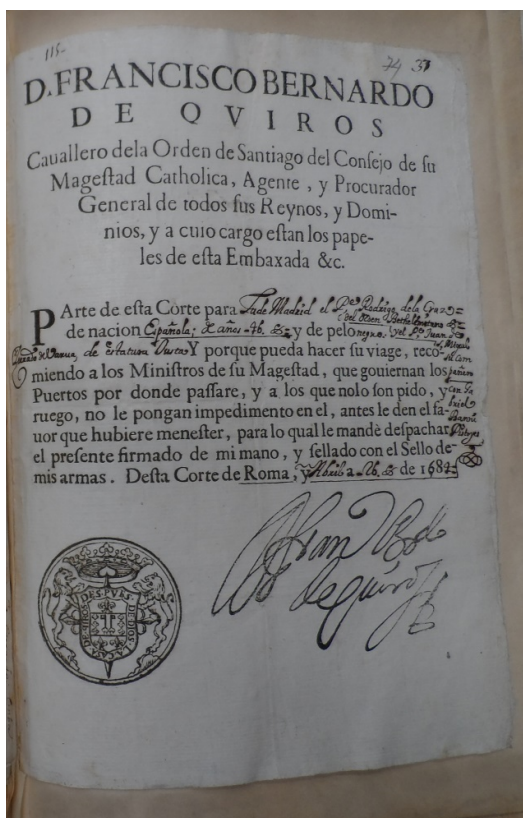 115-
74 37
D. FRANCISCO BERNARDO
DE QVIROS
Cauallero dela Orden de Santiago del Consejo de su
Magestad Catholica, Agente, y Procurador
General de todos sus Reynos, y Domi-
nios, y a cuio cargo estan los pape-
les de esta Embaxada &c.
PArte de esta Corte para la de Madrid el Pe. Rodrigo de la Cruz
del Orden
de nacion Española; de años 46. & y de pelo negro. y el Pe. Juan
de estatura Y porque pueda hacer su viage, reco-
miendo a los Ministros de su Magestad, que gouiernan los
Puertos por donde passare, y a los que nolo son pido, y
ruego, no le pongan impedimento en el, antes le den el fa-
uor que hubiere menester, para lo qual le mandè despachar
el presente firmado de mi mano, y sellado con el Sello de
mis armas. Desta Corte de Roma, y Abril a 26. & de 1684.
Fran Bdo
de quiros
DESPVES DE DIOS LA CASA DE QVIROS